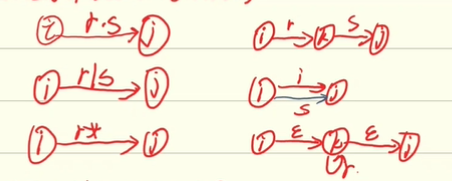 i r·s j i r k s j
i r|s j i i j s
i r* j i ε k ε j r.